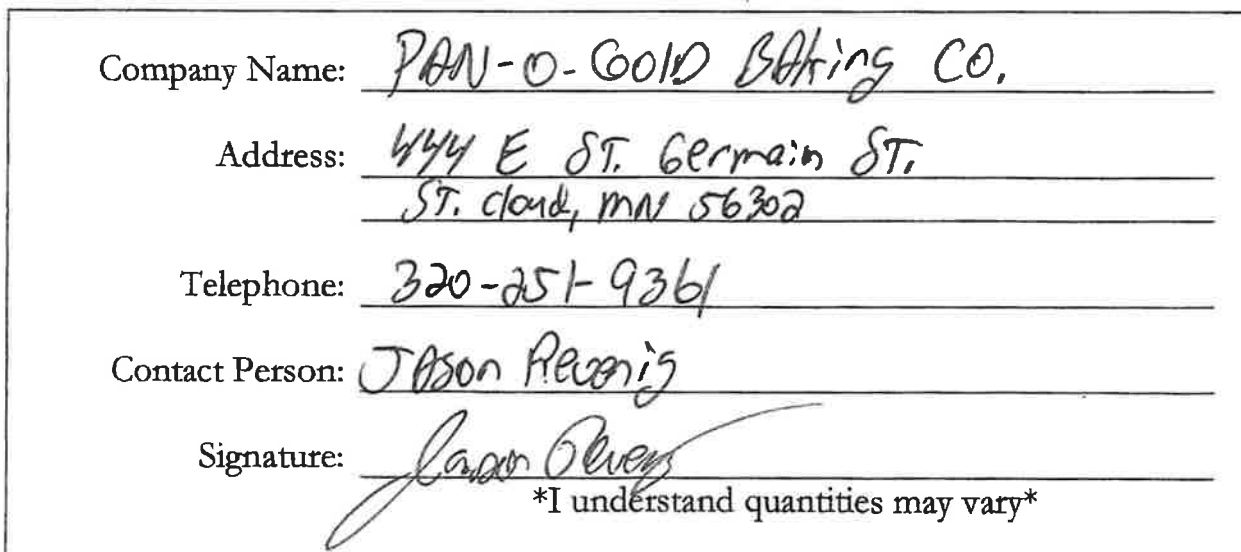 Company Name: PAN-O-GOLD BAking CO.
Address: 444 E ST. Germain ST.
ST. cloud, MN 56302
Telephone: 320-251-9361
Contact Person: JASon Revenig
Signature: Jason
*I understand quantities may vary*